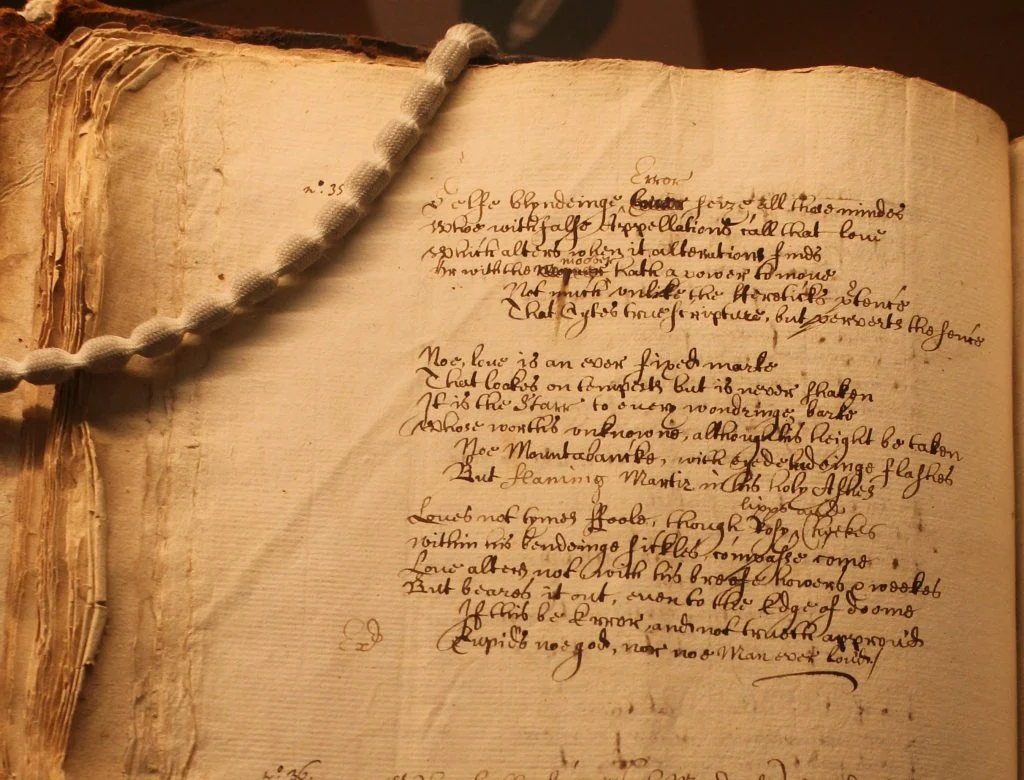 Error
nº. 35
Selfe blyndeinge error seize all those mindes
Whoe with false Appellations call that loue
Which alters when it alterations finds
moover
Or with the hath a power to moue
Not much vnlike the Hereticks ptence
That Cytes true scripture, but perverts the sence
Noe, loue is an ever fixed marke
That lookes on tempests but is never shaken
It is the Starr to euery wondringe barke
Whose worths vnknowne, although his height be taken
Noe Mountabancke, with eye deludeinge flashes
But flaming Martir in his holy Ashes
lipps and
Loues not tymes Foole, though Rosy Cheekes
within his bendeinge sickles compasse come
Loue alters not with his breife howers & weekes
But beares it out, euen to the Edge of doome
If this be Error, and not trueth approu'd
Cupids noe god, nor noe Man ever lou'd
nº. 36.